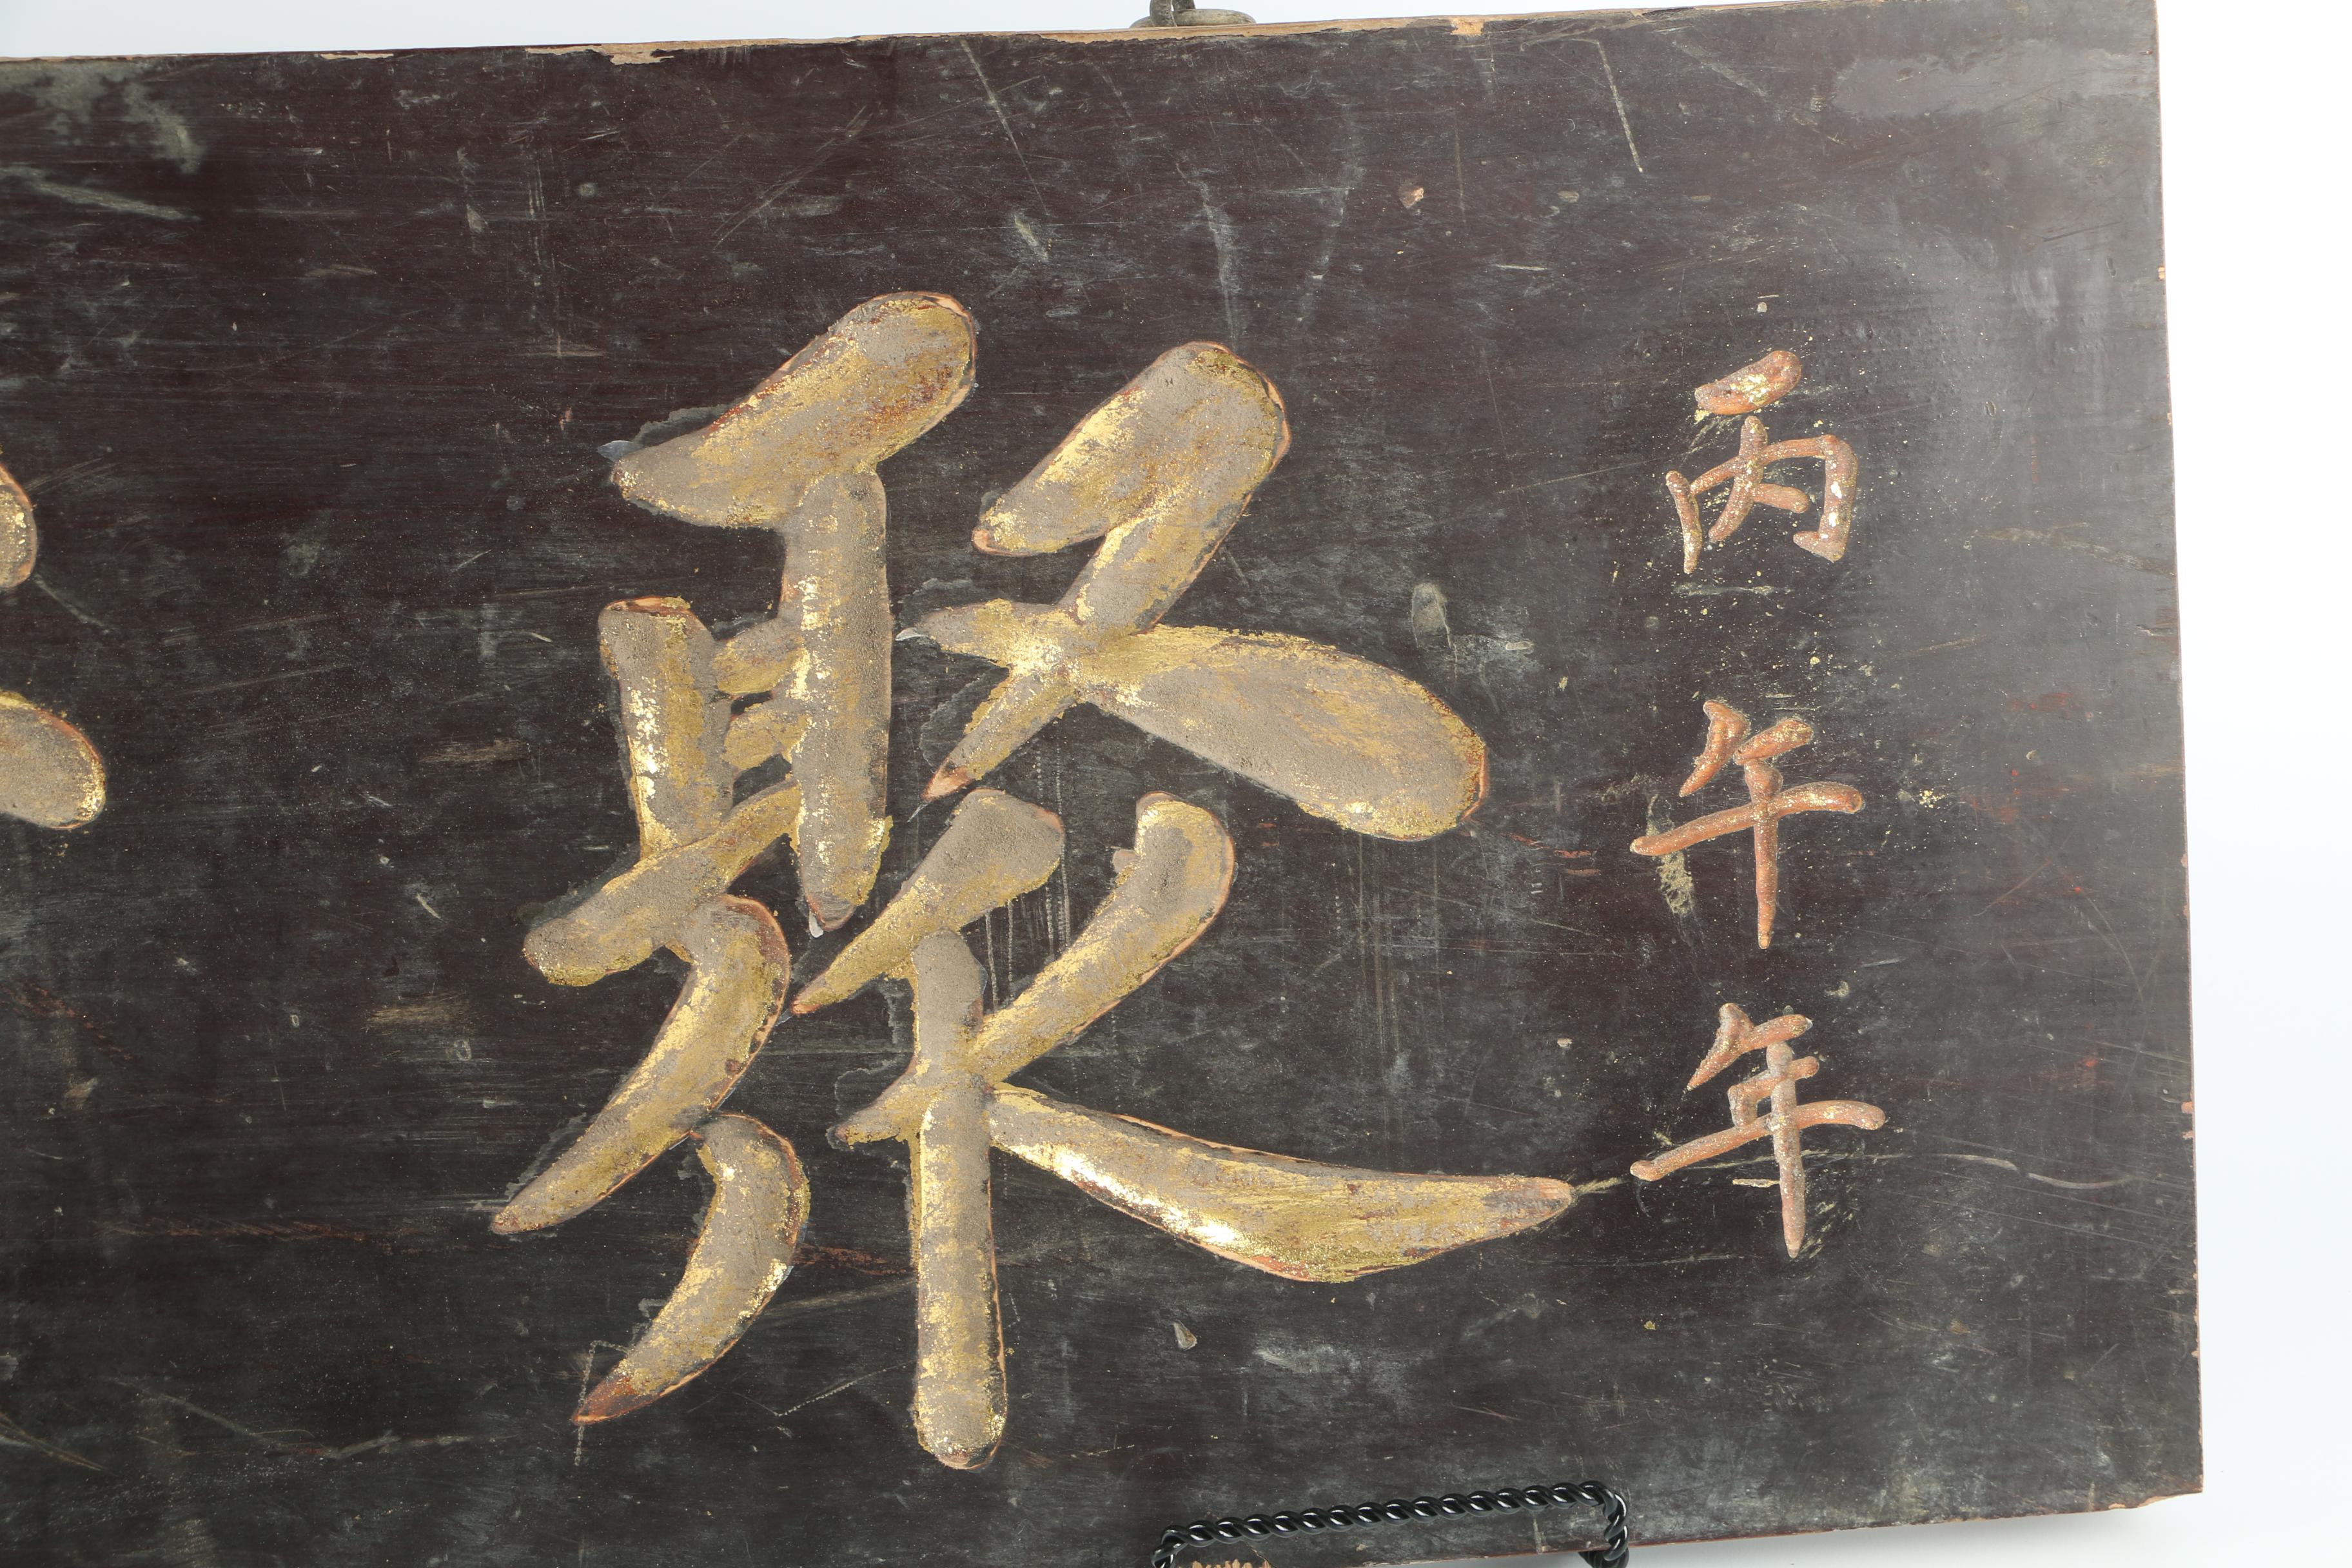 丙午年
聚